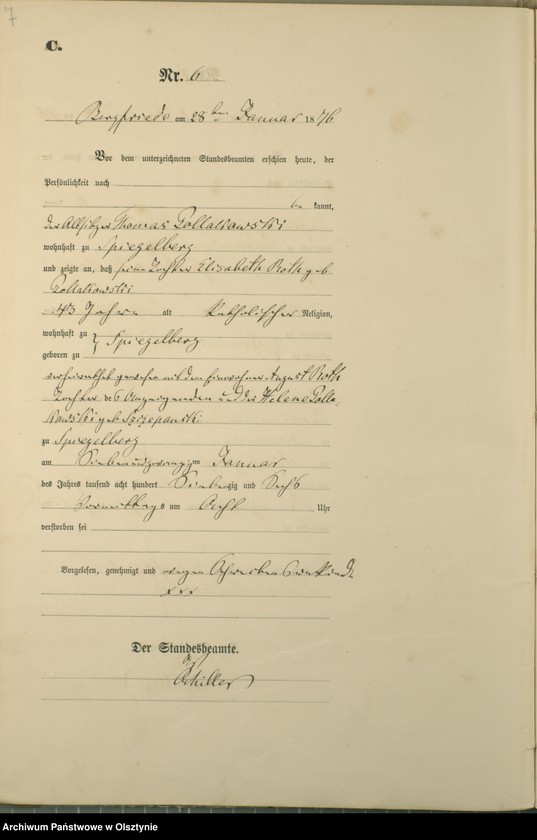 7
C.
Nr. 6
Bergfriede am 28 ten Januar 1876
Vor dem unterzeichneten Standesbeamten erschien heute, der
Persönlichkeit nach
be kannt,
der Altsitzer Thomas Pollakowski
wohnhaft zu Spiegelberg
und zeigte an, daß seine Tochter Elisabeth Roth geb
Pollakowski
43 Jahre alt Katholischer Religion,
wohnhaft zu Spiegelberg
geboren zu
verheirathet gewesen mit dem Einwohner August Roth
Tochter des Anzeigenden und der Helene Polla-
kowski geb Szczepanski
zu Spiegelberg
am Siebenundzwanzigten Januar
des Jahres tausend acht hundert Siebenzig und Sechs
Vormittags um Acht Uhr
verstorben sei
Vorgelesen, genehmigt und wegen Schreibens Unkunde
xxx
Der Standesbeamte.
Schiller
Archiwum Państwowe w Olsztynie